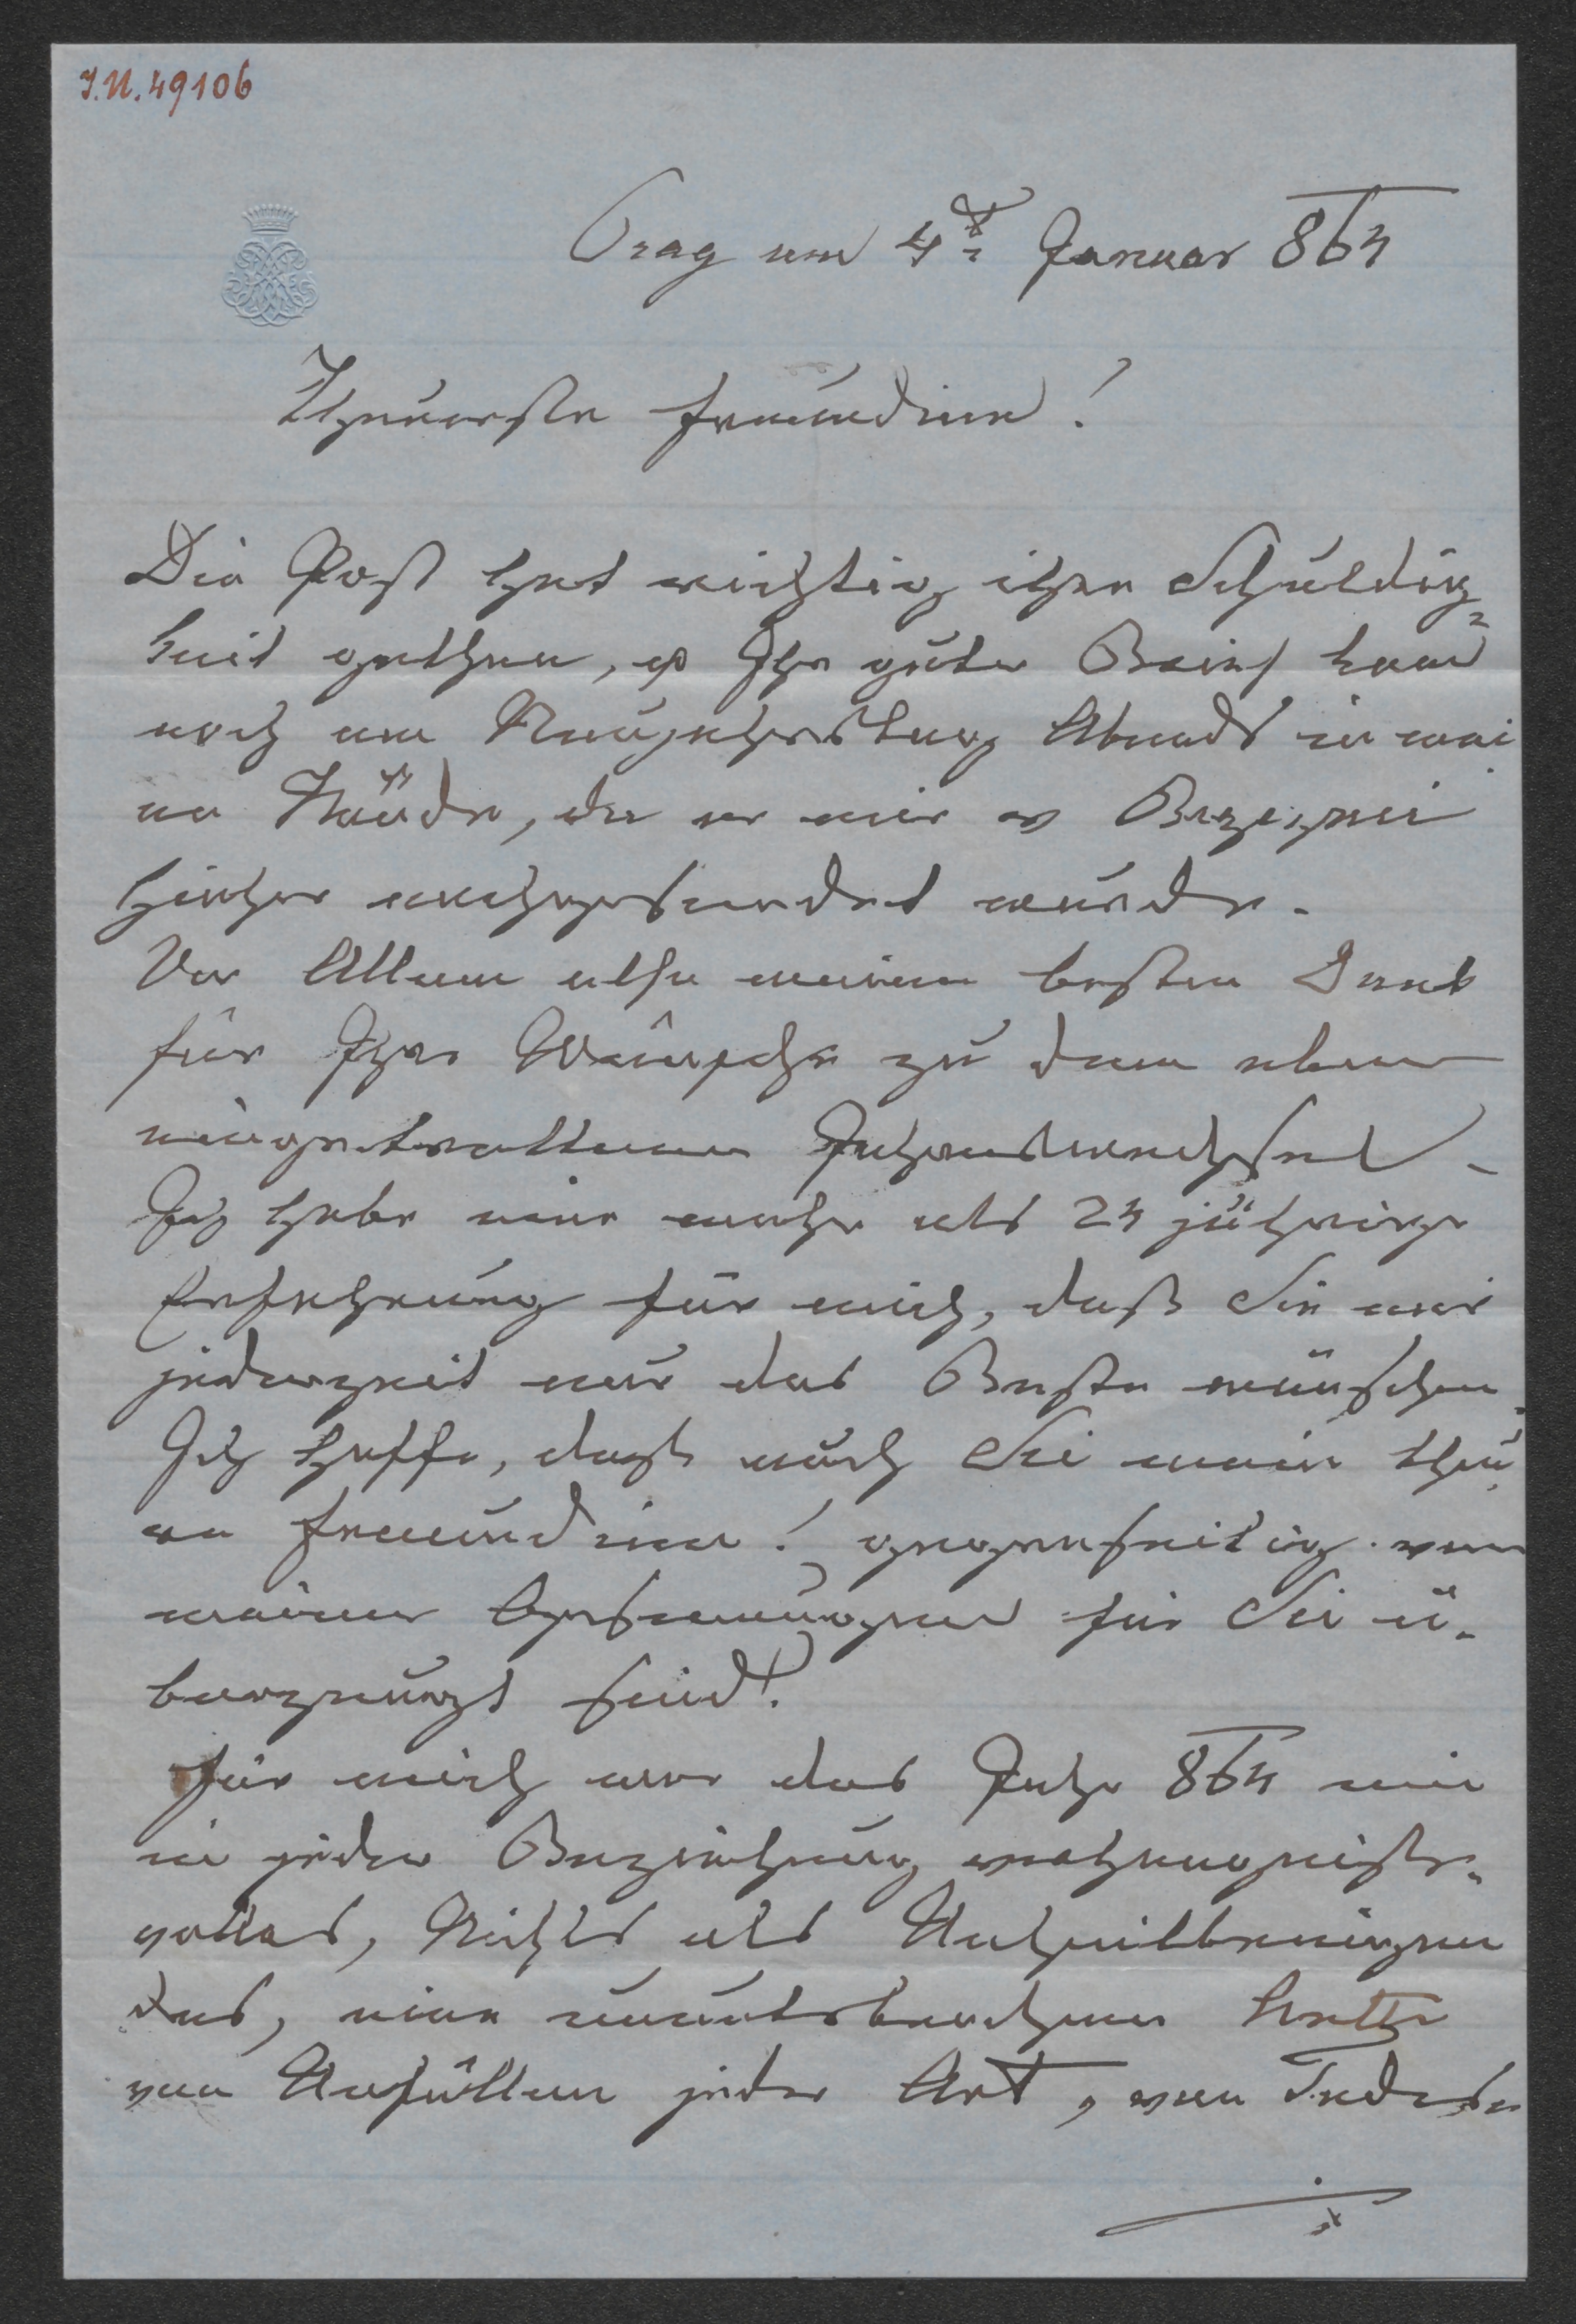 I.N. 49106
Prag am 4t Januar 864
Theuerste Freundinn!
Die Post hat richtig ihre Schuldig=
keit gethan, Ihr guter Brief kam
noch am Neujahrstag Abends in mei
ne Hände, da er mir v Brzezina
hieher nachgesendet wurde.
Vor Allem also meinen besten Dank
für Ihre Wünsche zu dem eben
eingetrettenen Jahreswechsel.
Ich habe eine mehr als 24 jährige
Erfahrung für mich, daß Sie mir
jederzeit nur das Beste wünschen.
Ich hoffe, daß auch Sie meine theu
re Freundinn! gegenseitig von
meinen Gesinnungen für Sie ü=
berzeugt sind!
Für mich war das Jahr 864 ein
in jeder Beziehung verhängniß=
volles, Nichts als Unheilbringen
des, eine ununterbrochene Kette
von Unfällen jeder Art, von Todes